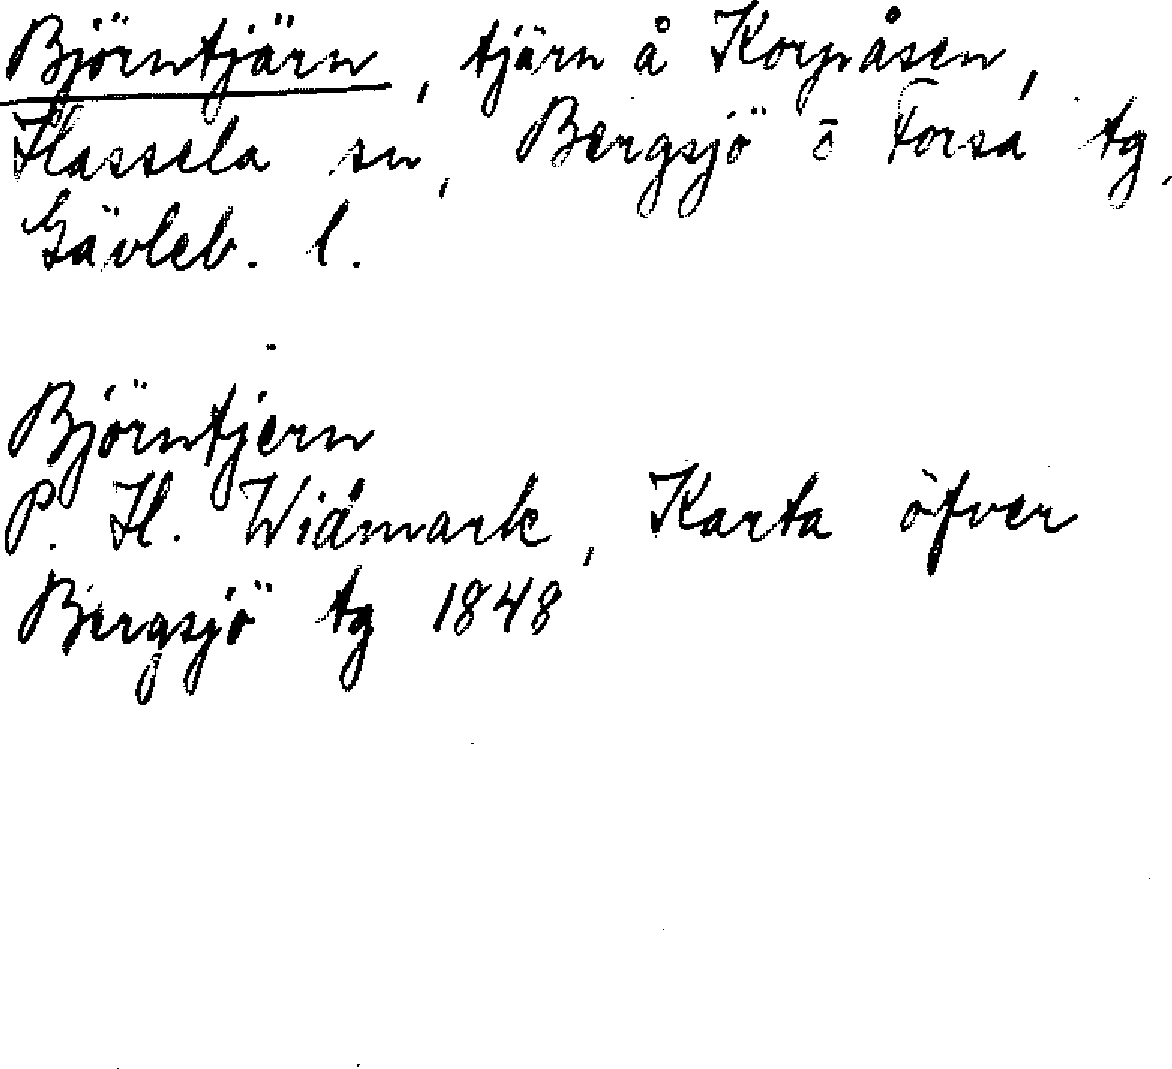 Björntjärn, tjärn å Korpåsen,
Hassela sn, Bergsjö o Forsa tg,
Gävleb. l.
Björntjern
P. H. Widmark, Karta öfver
Bergsjö tg 1848